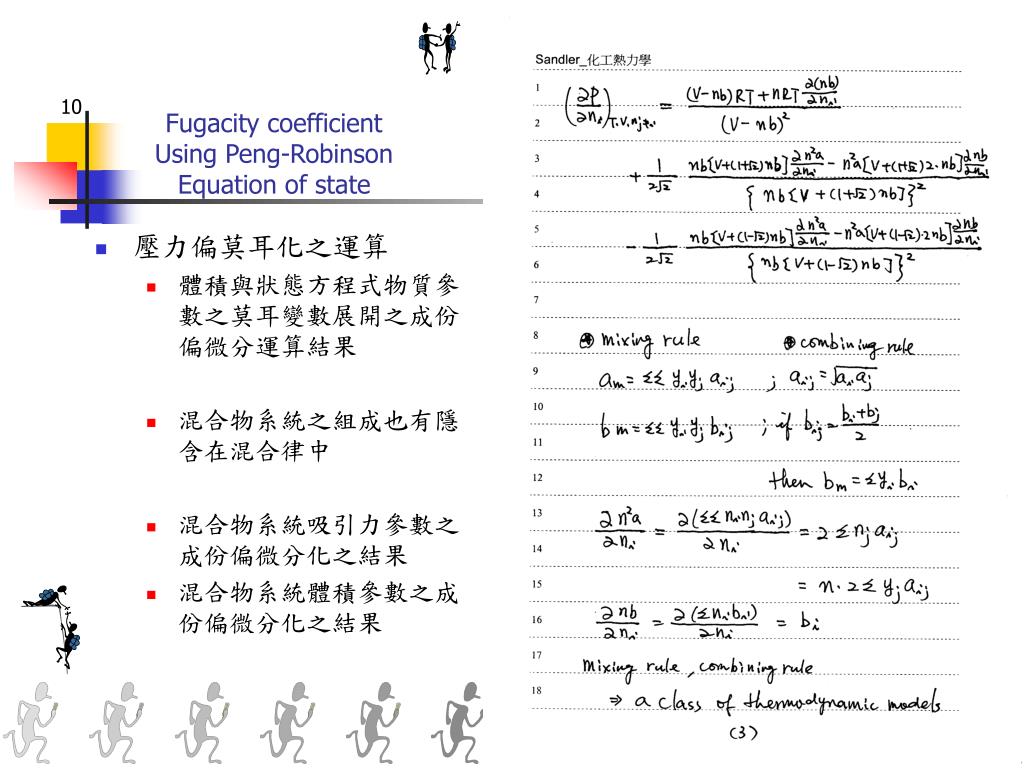 10
Fugacity coefficient
Using Peng-Robinson
Equation of state
■ 壓力偏莫耳化之運算
■ 體積與狀態方程式物質參
數之莫耳變數展開之成份
偏微分運算結果
■ 混合物系統之組成也有隱
含在混合律中
■ 混合物系統吸引力參數之
成份偏微分化之結果
■ 混合物系統體積參數之成
份偏微分化之結果
Sandler_化工熱力學
1
2 (∂P/∂nᵢ)T,V,nj≠i = ((V-nb)RT + nRT ∂(nb)/∂nᵢ) / (V-nb)²
3
4 + 1/2√2 (nb[V+(1+√2)nb] ∂n²a/∂nᵢ - n²a[V+(1+√2)2·nb] ∂nb/∂nᵢ) / {nb[V+(1+√2)nb]}²
5
6 - 1/2√2 (nb[V+(1-√2)nb] ∂n²a/∂nᵢ - n²a[V+(1-√2)·2nb] ∂nb/∂nᵢ) / {nb[V+(1-√2)nb]}²
7
8 mixing rule combining rule
9 am = ΣΣ yᵢyj aᵢj ; aᵢj = √aᵢaj
10
11 bm = ΣΣ yᵢyj bᵢj ; if bᵢj = (bᵢ+bj)/2
12 then bm = Σyᵢbᵢ
13
14 ∂n²a/∂nᵢ = ∂(ΣΣ nᵢnj aᵢj)/∂nᵢ = 2Σnj aᵢj
15 = n·2Σ yj aᵢj
16 ∂nb/∂nᵢ = ∂(Σnᵢbᵢ)/∂nᵢ = bᵢ
17 mixing rule, combining rule
18 ⇒ a class of thermodynamic models
(3)